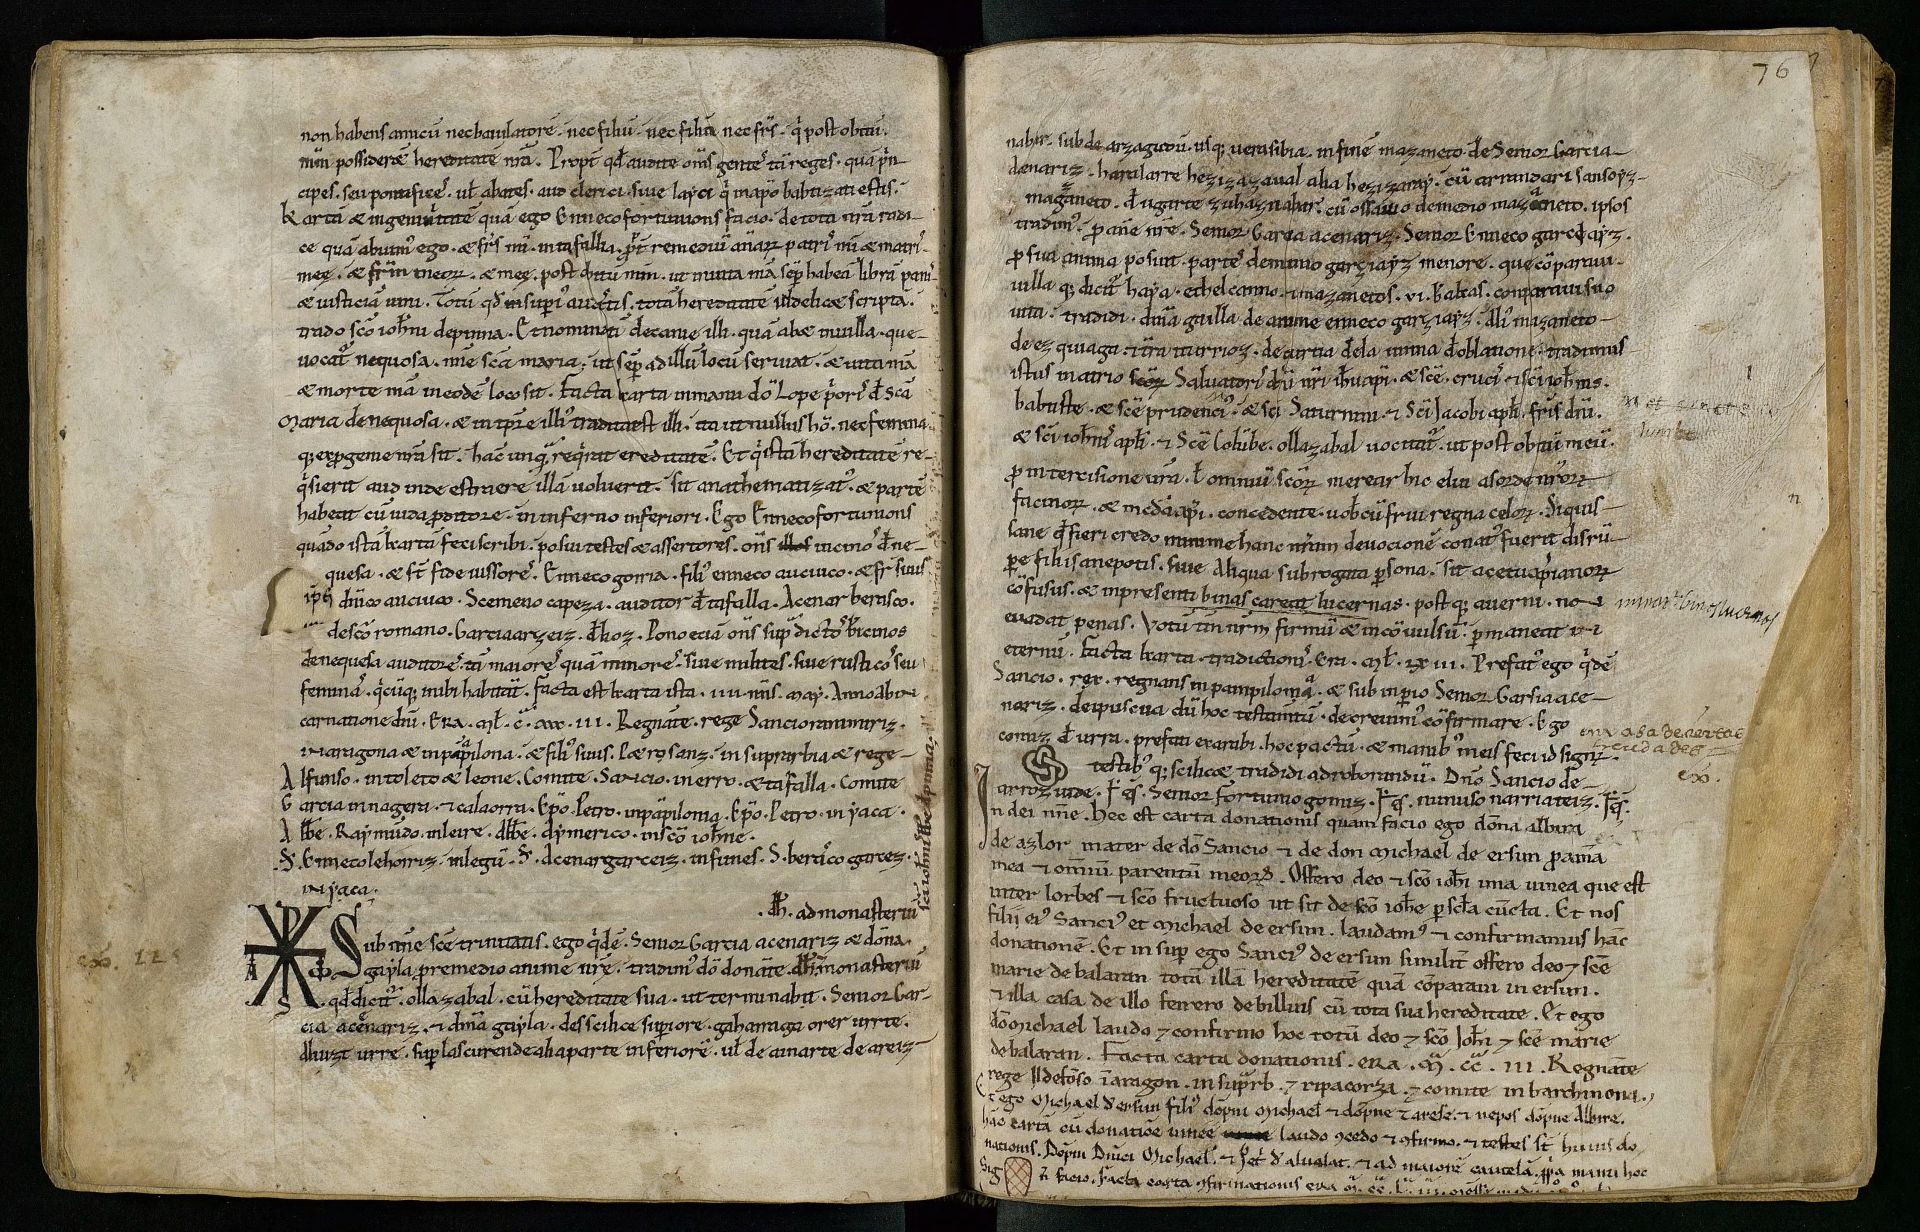 non habens amicū nec baiulatorē · nec filiū · nec filiā nec frs̄ · q̇ post obitū ·
mm̄ possiderēt hereditatē mēā · Propt̄ qd̄ audite om̄s gentes tā reges · quā p̄n
cipes · seu pontifices · ul̄ abates · aud clerici · siue layci q̇ in xp̄o babtizati estis ·
k arta & ingenuitatē quā ego Enneco fortunions facio · de tota mēā radi-
ce quā abuim' ego · & frs̄ mī · in tafallia · pr̄t remediū animarum patris mī & matris
meę · & frm̄ meorum · & meę · post obitū mm̄ · ut in uita mēā sēp habeā librā panis
& iusticiā uini · Totū qd̄ insuperi' auditis · tota hereditate ualde licet scripta ·
trado sc̄o ioh̄ni de pinna · Et nominatī decanie illi · quā abet in uilla · que
uocat' nequosa · nn̄e sc̄a maria · ut sēp ad illū locū seruiat · & uita mēā
& morte mēā in eodē loco sit · Facta karta in manu dō Lope p̄ori' de sc̄a
Maria de nequosa · & in ipsē illi' tradita est illi · ita ut nullus hō · nec femina
q; ex pgenie mēā sit · hac unq̄ req̄rat ereditatē · Et q̇ istā hereditatē re-
q̇sierit aud inde estraere illā uoluerit · sit anathematizat' · & partē
habeat cū iuda proditore · in inferno inferiori · Ego Enneco fortunions
quādo istā karta feci scribi · posui testes & assertores · om̄s uicino' de ne-
quesa · & st̄ fide iussores · Enneco gomia · fili' enneco aucuco · & fr̄ suus
dūco aucuco · Scemeno capeza · auditor de tafalla · Acenar berasco ·
de sc̄o romano · Garcia arzeiz · de koz · Pono eciā om̄s sup dictos uicinos
de nequesa auditores · tā maiores quā minores · siue milites · siue rusticos seu
feminas · q̇cūq; inibi habitāt · Facta est karta ista · IIII · nn̄s · may · Anno ab in
carnatione dn̄i · ERA · Ml̄ · C̄ · XXX · III · Regnāte · rege Sancio ranimiriz ·
in aragona & in papilona · & fili' suus · Petro sanz · in suprarbia & rege-
Alfunso · in toleto & leone · Comite · Sancio · in erro · & tafalla · Comite
Garcia in nagera · & calaorra · Epō · Petro · in papilona · Epō · Petro · in yaca ·
Abbē · Raymūdo · in leire · Abbē · Aymerico · in sc̄o ioh̄ne ·
S · Enneco lehoriz · in legū · S · Acenar garceiz · in funes · S · beraico garcez ·
in yaca ·
· de · ad monasteriū
sc̄i ioh̄nis de pinna
Sub nn̄e sc̄e trinitatis · ego q̇dē · Senior Garcia acenariz & dōna
gayla premedio anime nr̄e · tradim' dō donāte monasteriū
· qd̄ dicit' · ollazabal · cū hereditate sua · ut terminabit · Senior Gar-
cia acēnariz · & dn̄a gayla · des scilice superiore · gaharraga orer urte ·
aluizt urre · sup lascurende alia parte inferiorē · ul̄ de ainarte de areiz-
76
nabar · sub de arzagutū · usq; uerasibia · in finē mazaneto de Senior Garcia
denariz · haralarre hezizazaual alia hezizaray · cū arrandari sansoyz-
maganeto · de ugarte zuhaznabar · cū ossauio de medio mazāneto · ipsos
tradim' · p ane nr̄e · Senior Garcia acenariz · Senior Enneco garceayz ·
p sua anima posuit · partes de munio garziayz menore · que cōparaui
uilla q; dicit' haya · echelcanno · & mazanetos · VI · kabas · comparaui suo
uita · tradidi · dn̄a gailla de anime enneco garziayz · Ali' mazaneto
de ez quiaga · & tr̄a iturrioz · de curtia de la unna de oblatione · tradimus
istus in atrio sc̄orum Saluatori' dn̄i nr̄i ih̄u xp̄i · & sc̄e · cruci' & sc̄i ioh̄nis ·
babtiste · & sc̄e prudenci' · & sc̄i Saturnini · & Sc̄i Jacobi apl̄i · fr̄is dn̄i ·
& sc̄i ioh̄nis apl̄i · & Sc̄e Colūbe · ollazabal uocitat' · ut post obitū meū ·
p intercisione ur̄a · & omniū sc̄orum merear hic elui a sorde meorum
facinorum · & mcdā xp̄i · concedente · uobcū frui regna celorum · Siquis
sane qd̄ fieri credo minime hanc nr̄am deuocionē conat' fuerit disrū-
pe filiis a nepotis · siue Aliqua subrogata psona · sit a cetu xp̄ianorum
cōfusus · & in presenti binas careat lucernas · post q; auerni · no i
euadat penas · Votū tm̄ nr̄m firmū & incōuulsū · p maneat in
eternū · Facta karta · tradictionis · Era · Ml̄ · LX III · Prefat' ego q̇dē
Sancio · rex · regnans in pampilona · & sub inperio Senior Garsia ace-
nariz · de ipuscua dū hoc testamentū · decreuim' cōfirmare · Ego
comiz · de urra · prefati exarabi · hoc pactū · & manib' meis feci id signū ·
testib' q; scilicet tradidi ad roborandū · Dn̄o Sancio de
arroz uide · Fēs · Senior fortunio gomiz · Fēs · nunuso narriateiz · Fēs ·
In dei nn̄e · Hec est carta donationis quam facio ego dōna albira
de azlor mater de dō Sancio & de don Michael de ersun p anima
mea & omnū parentū meorum · Offero deo & sc̄o ioh̄i una uinea que est
inter lorbes & sc̄o fructuoso ut sit de sc̄o ioh̄e p scl̄a cūcta · Et nos
filii ei' Sanci' et Michael de ersun · laudam' & confirmamus hāc
donationē · Et insup ego Sanci' de ersun similit̄ offero deo & sc̄e
marie de balaran totā illā hereditatē quā cōparaui in ersun ·
& illa casa de illo ferrero de billuis cū tota sua hereditate · Et ego
dō Michael laudo & confirmo hoc totū deo & sc̄o Joh̄i & sc̄e marie
de balaran · Facta carta donationis · ERA · M̄ · CC · III · Regnāte
rege Ildefōso ī aragon · in suprarb · & ripacorza · & comite in barchinona ·
& ego Michael d' ersun fili' dōpni Michael & dōpne tarese · & nepos dōpne Albire ·
hāc cartā cū donatiōe uinee laudo ɔcedo & ɔfirmo · & testes st̄ huius do
nationis · Dōpni Dinci Michael & Pet' d' alualat · & ad maiorē cautelā · manu hoc
Sig nū facio · Facta carta ɔfirmationis era